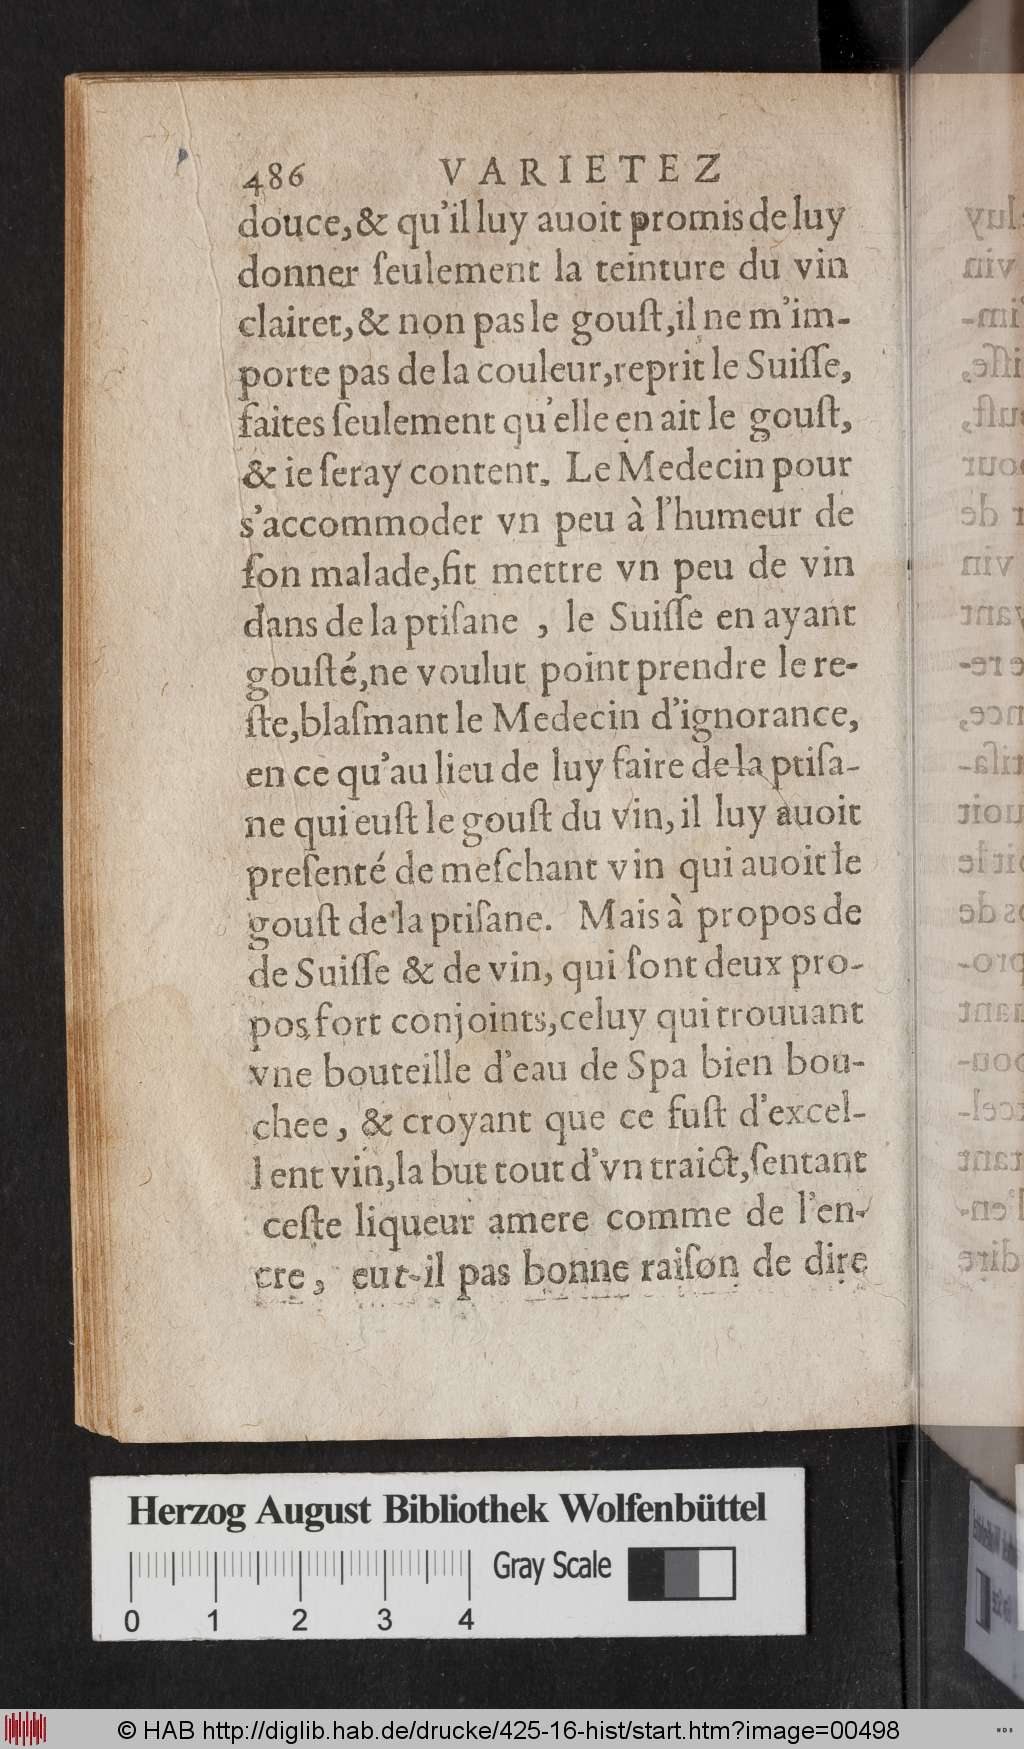 486 VARIETEZ
douce,& qu'il luy auoit promis de luy
donner ſeulement la teinture du vin
clairet,& non pas le gouſt,il ne m'im-
porte pas de la couleur,reprit le Suiſſe,
faites ſeulement qu'elle en ait le gouſt,
& ie ſeray content. Le Medecin pour
s'accommoder vn peu à l'humeur de
ſon malade,fit mettre vn peu de vin
dans de la ptiſane , le Suiſſe en ayant
gouſté,ne voulut point prendre le re-
ſte,blaſmant le Medecin d'ignorance,
en ce qu'au lieu de luy faire de la ptiſa-
ne qui euſt le gouſt du vin, il luy auoit
preſenté de meſchant vin qui auoit le
gouſt de la ptiſane. Mais à propos de
de Suiſſe & de vin, qui ſont deux pro-
pos fort conjoints,celuy qui trouuant
vne bouteille d'eau de Spa bien bou-
chee, & croyant que ce fuſt d'excel-
lent vin,la but tout d'vn traict,ſentant
ceſte liqueur amere comme de l'en-
cre, eut-il pas bonne raiſon de dire
Herzog August Bibliothek Wolfenbüttel
Gray Scale
0 1 2 3 4
© HAB http://diglib.hab.de/drucke/425-16-hist/start.htm?image=00498